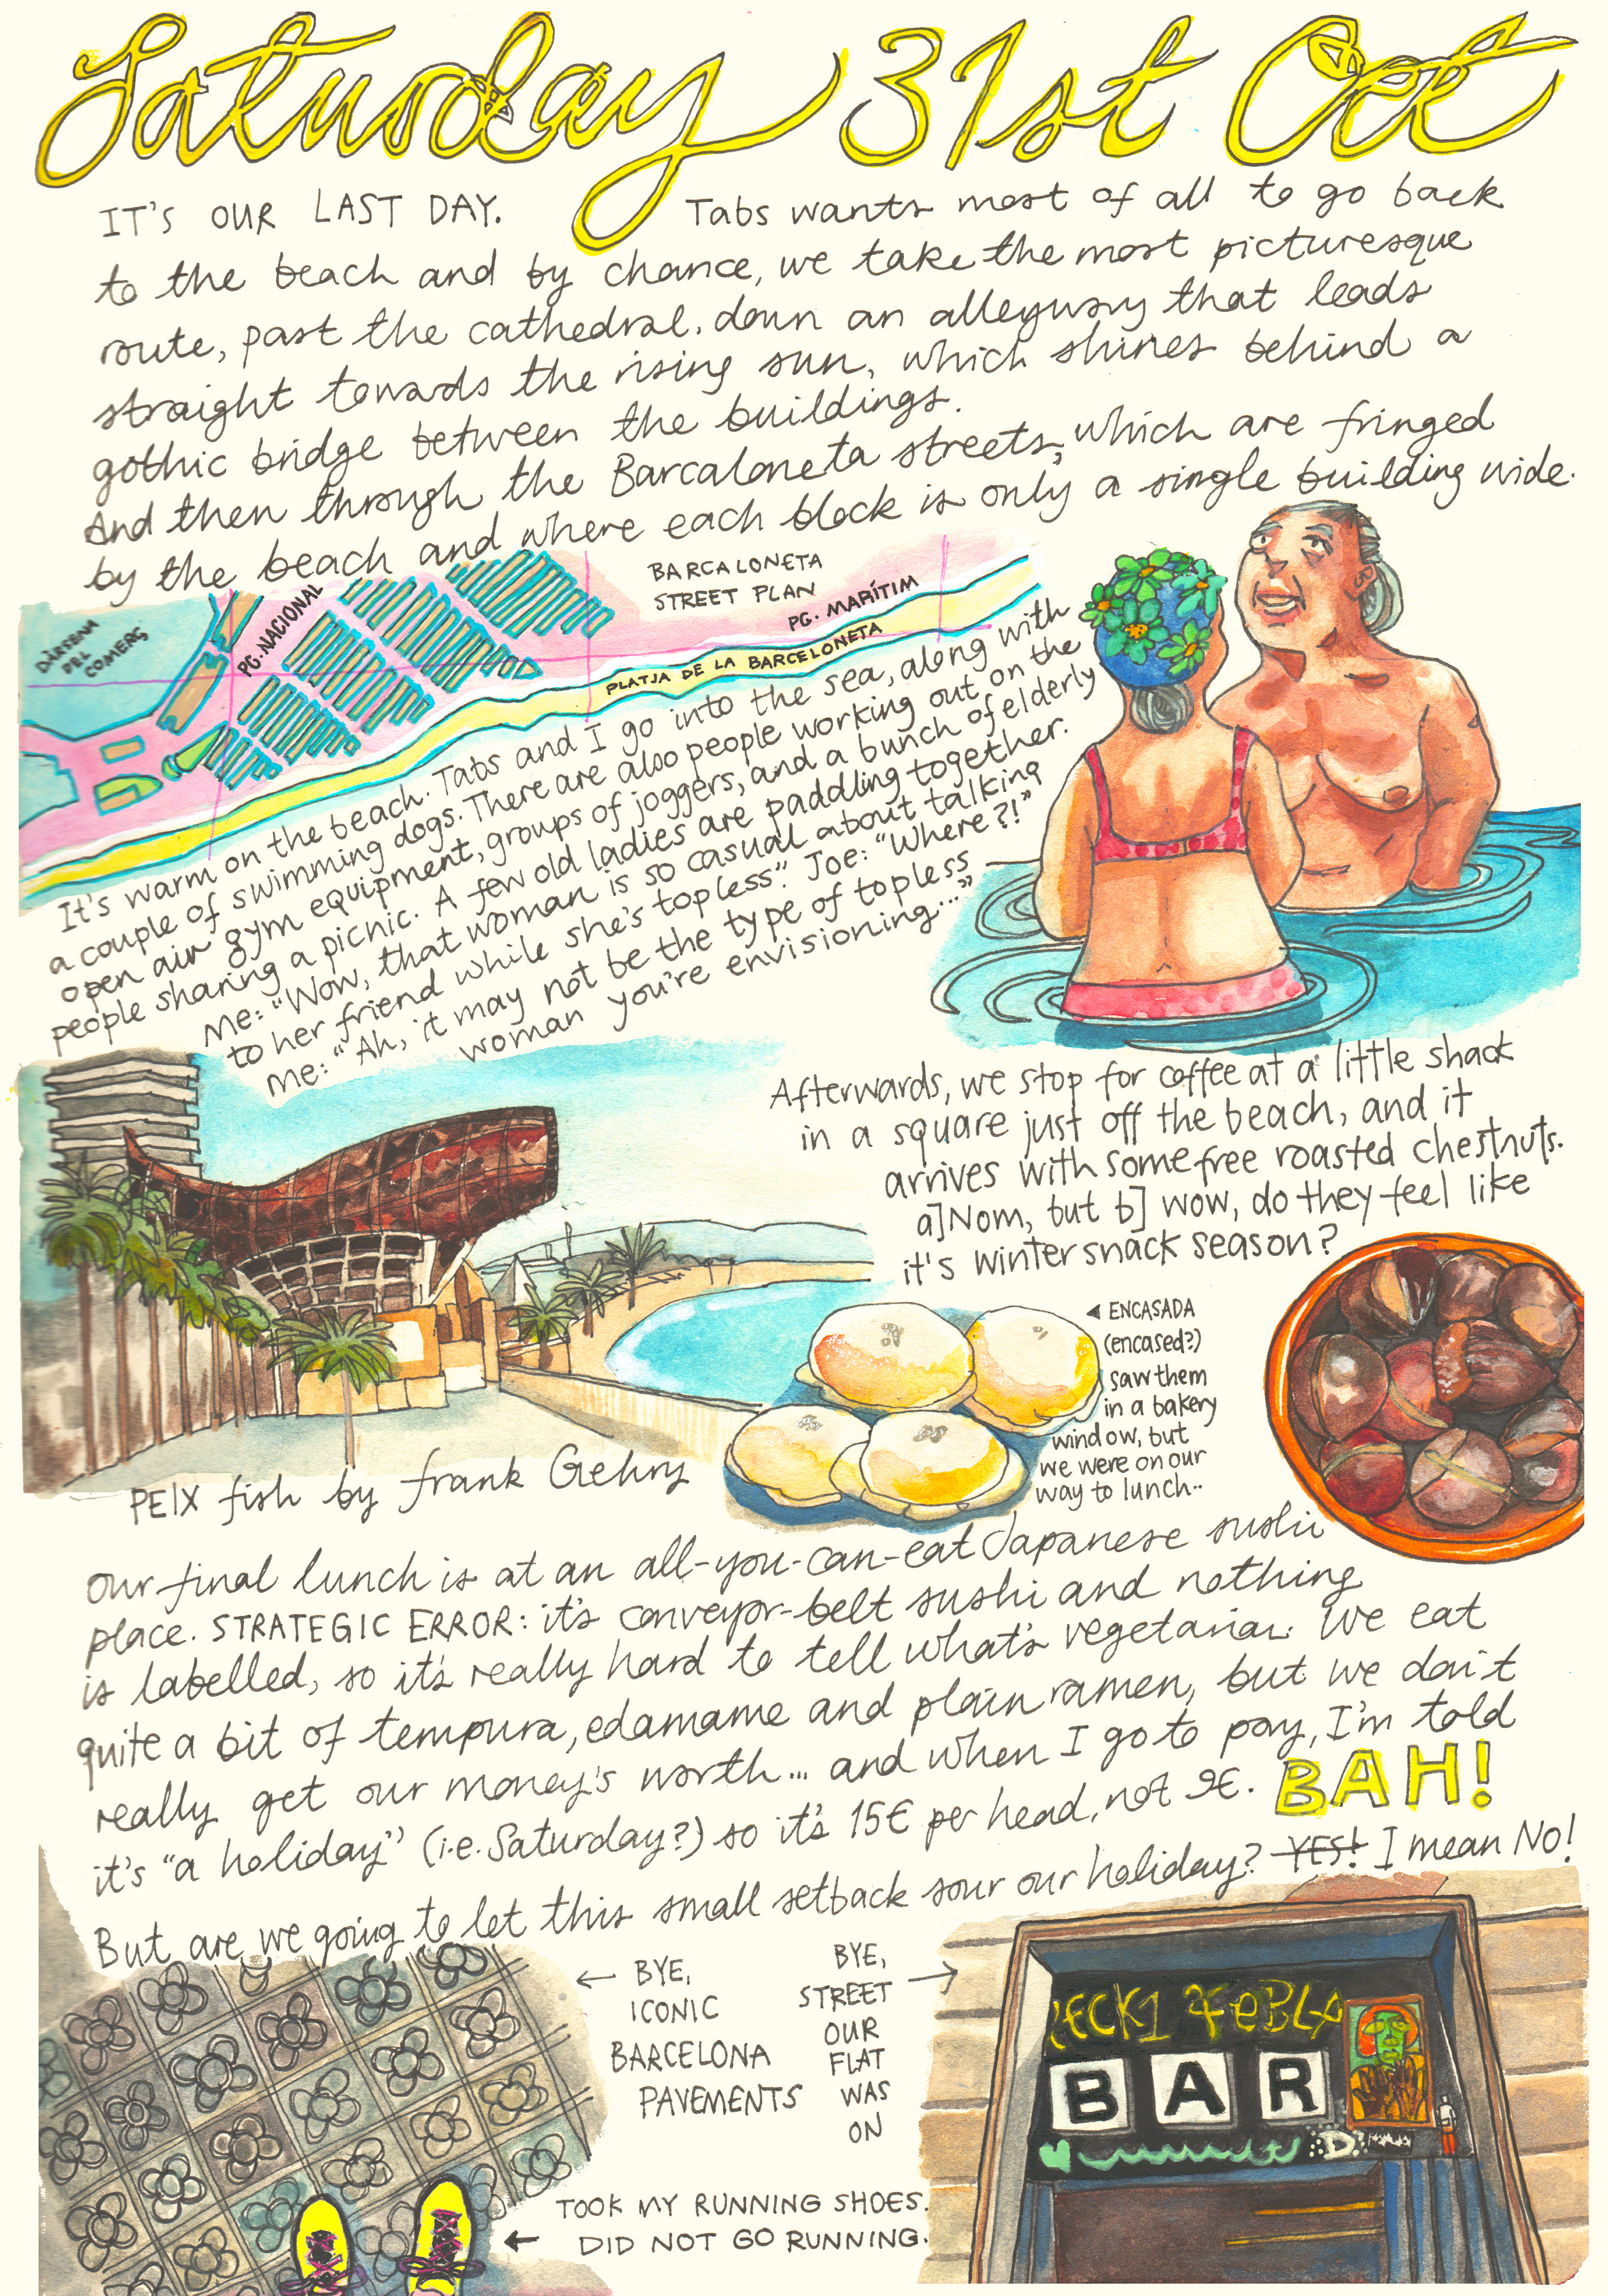 Saturday 31st Oct
IT'S OUR LAST DAY. Tabs wants most of all to go back
to the beach and by chance, we take the most picturesque
route, past the cathedral, down an alleyway that leads
straight towards the rising sun, which shines behind a
gothic bridge between the buildings.
And then through the Barcaloneta streets, which are fringed
by the beach and where each block is only a single building wide.
BARCALONETA
STREET PLAN
DÀRSENA
DEL
COMERÇ
PG. NACIONAL
PG. MARÍTIM
PLATJA DE LA BARCELONETA
It's warm on the beach. Tabs and I go into the sea, along with
a couple of swimming dogs. There are also people working out on the
open air gym equipment, groups of joggers, and a bunch of elderly
people sharing a picnic. A few old ladies are paddling together.
Me: "Wow, that woman is so casual about talking
to her friend while she's topless". Joe: "Where?!"
Me: "Ah, it may not be the type of topless
woman you're envisioning..."
Afterwards, we stop for coffee at a little shack
in a square just off the beach, and it
arrives with some free roasted chestnuts.
a] Nom, but b] wow, do they feel like
it's winter snack season?
PEIX fish by frank Gehry
◄ ENCASADA
(encased?)
saw them
in a bakery
window, but
we were on our
way to lunch..
Our final lunch is at an all-you-can-eat Japanese sushi
place. STRATEGIC ERROR: it's conveyor-belt sushi and nothing
is labelled, so it's really hard to tell what's vegetarian. We eat
quite a bit of tempura, edamame and plain ramen, but we don't
really get our money's worth... and when I go to pay, I'm told
it's "a holiday" (i.e. Saturday?) so it's 15€ per head, not 9€. BAH!
But are we going to let this small setback sour our holiday? YES! I mean NO!
← BYE,
ICONIC
BARCELONA
PAVEMENTS
BYE, →
STREET
OUR
FLAT
WAS
ON
BAR
← TOOK MY RUNNING SHOES.
DID NOT GO RUNNING.